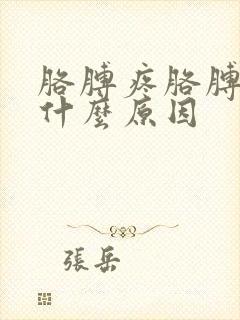 胳膊疼胳膊
什麼原因
張岳